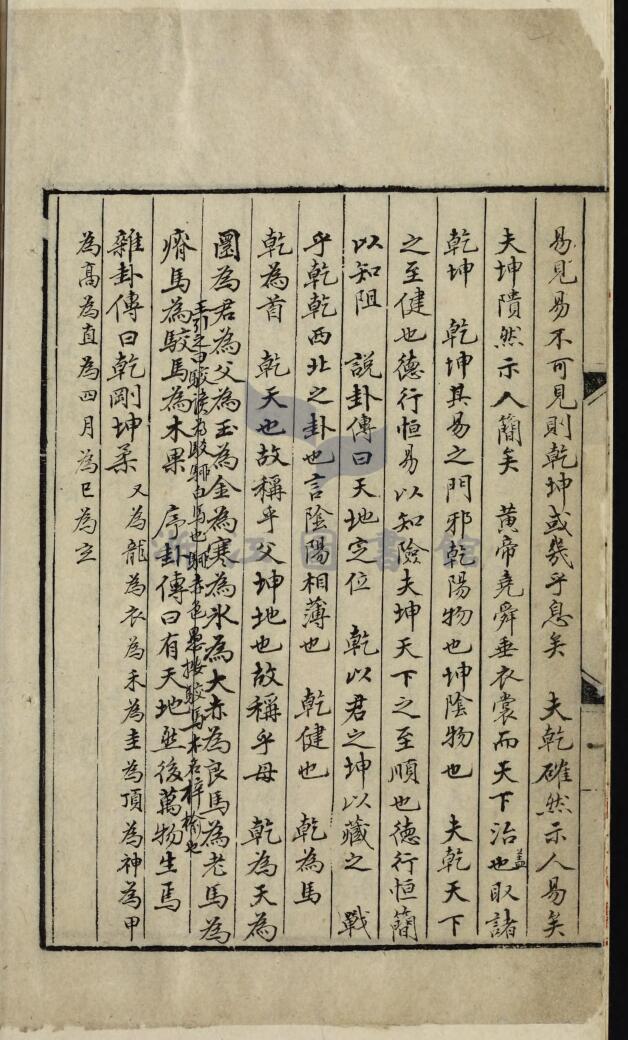 易見易不可見則乾坤或幾乎息矣　夫乾確然示人易矣
夫坤隤然示人簡矣　黄帝堯舜垂衣裳而天下治也蓋取諸
乾坤　乾坤其易之門邪乾陽物也坤陰物也　夫乾天下
之至健也德行恒易以知險夫坤天下之至順也德行恒簡
以知阻　說卦傳曰天地定位　乾以君之坤以藏之　戰
乎乾乾西北之卦也言陰陽相薄也　乾健也　乾為馬
乾為首　乾天也故稱乎父坤地也故稱乎母　乾為天為
圜為君為父為玉為金為寒為氷為大赤為良馬為老馬為
瘠馬為駁馬為木果　序卦傳曰有天地然後萬物生焉
王引之曰駮讀為駁
白馬也
赤色
駮馬木名梓榆也
雜卦傳曰乾剛坤柔　又為龍為衣為禾為圭為頂為神為甲
為高為直為四月為巳為立
浙江圖書館